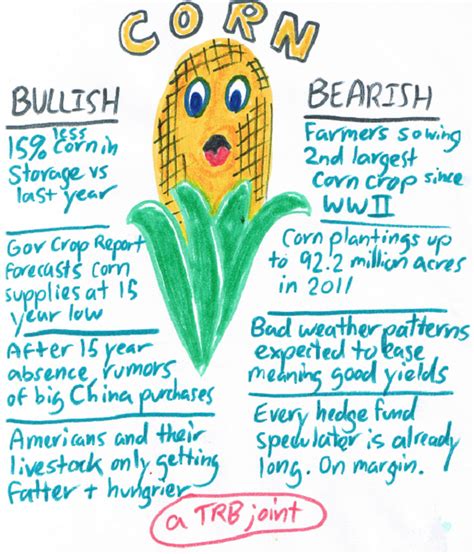 CORN
BULLISH
less
15% corn in
storage vs
last year
Gov Crop Report
forecasts corn
supplies at 15
year low
After 15 year
absence, rumors
of big China purchases
Americans and their
livestock only getting
fatter + hungrier
BEARISH
Farmers sowing
2nd largest
corn crop since
WWII
Corn plantings up
to 92.2 million acres
in 2011
Bad weather patterns
expected to ease
meaning good yields
Every hedge fund
speculater is already
long. On margin.
a TRB joint